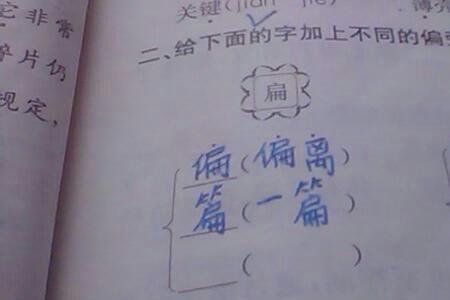 它非常
碎片仍
规定,
关键(jiàn jié)
薄壳
二、给下面的字加上不同的偏旁
扁
偏(偏离)
篇(一篇)
( )